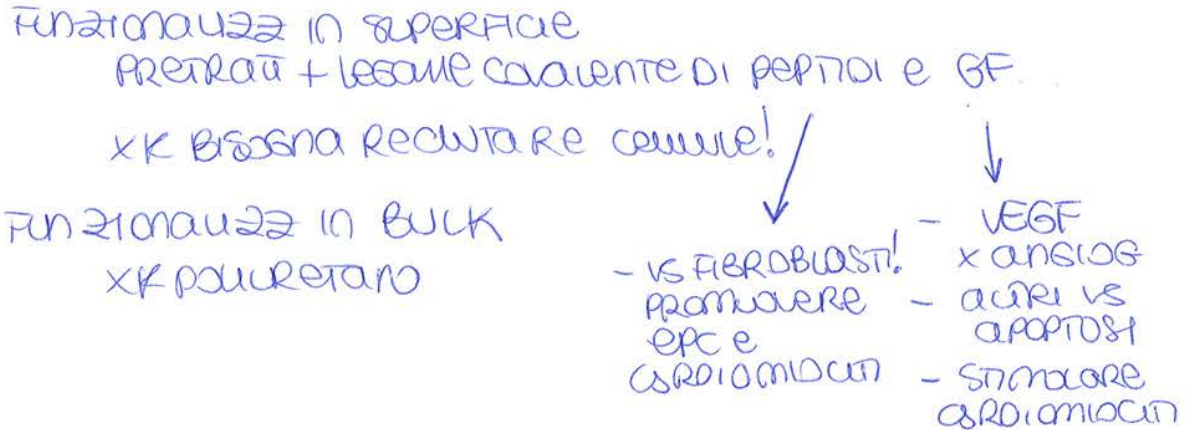 FUNZIONALIZZ IN SUPERFICIE
PRETRATT + LEGAME COVALENTE DI PEPTIDI E GF
XK BISOGNA RECLUTARE CELLULE!
FUNZIONALIZZ IN BULK
XK POLIURETANO
- VS FIBROBLASTI!
PROMUOVERE
EPC E
CARDIOMIOCITI
- VEGF
X ANGIOG
- ALTRI VS
APOPTOSI
- STIMOLARE
CARDIOMIOCITI